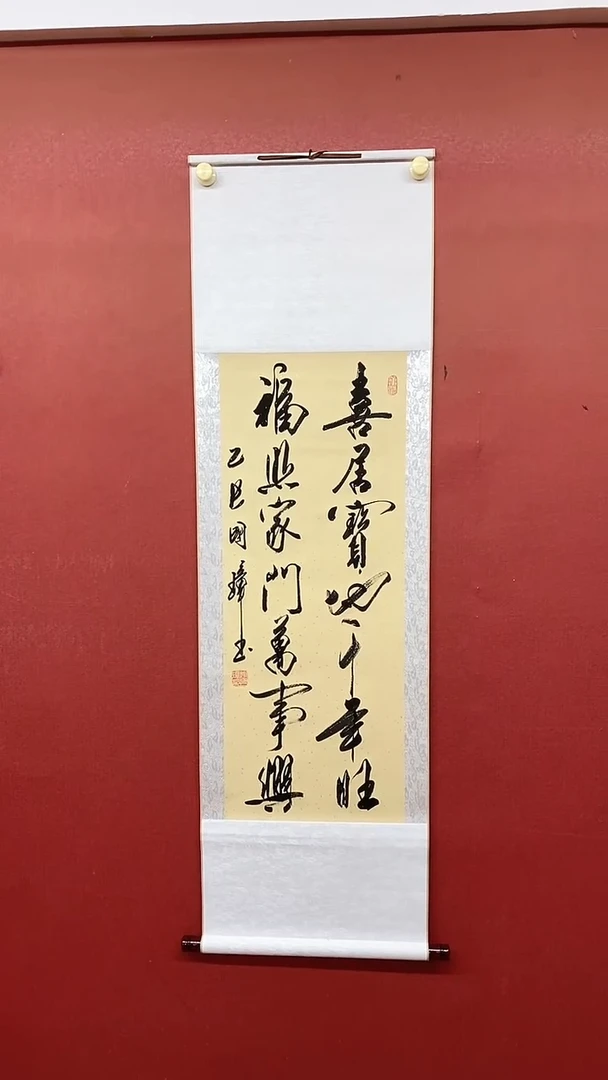 喜居寶地千年旺
福照家門萬事興
乙巳國瑋玉